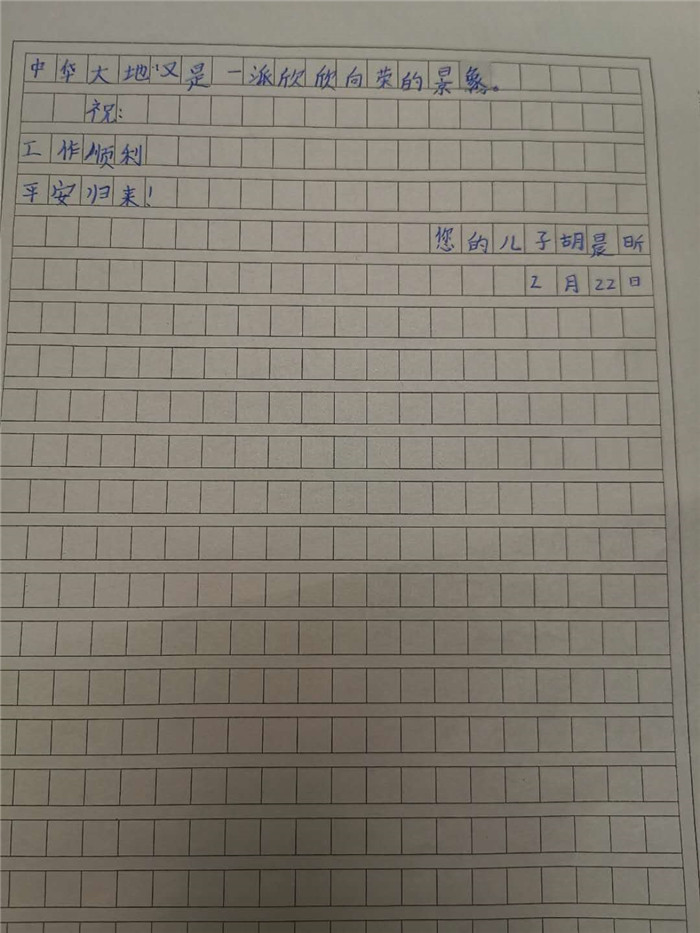 中华大地又是一派欣欣向荣的景象。
祝:
工作顺利
平安归来!
您的儿子胡晨昕
2月22日